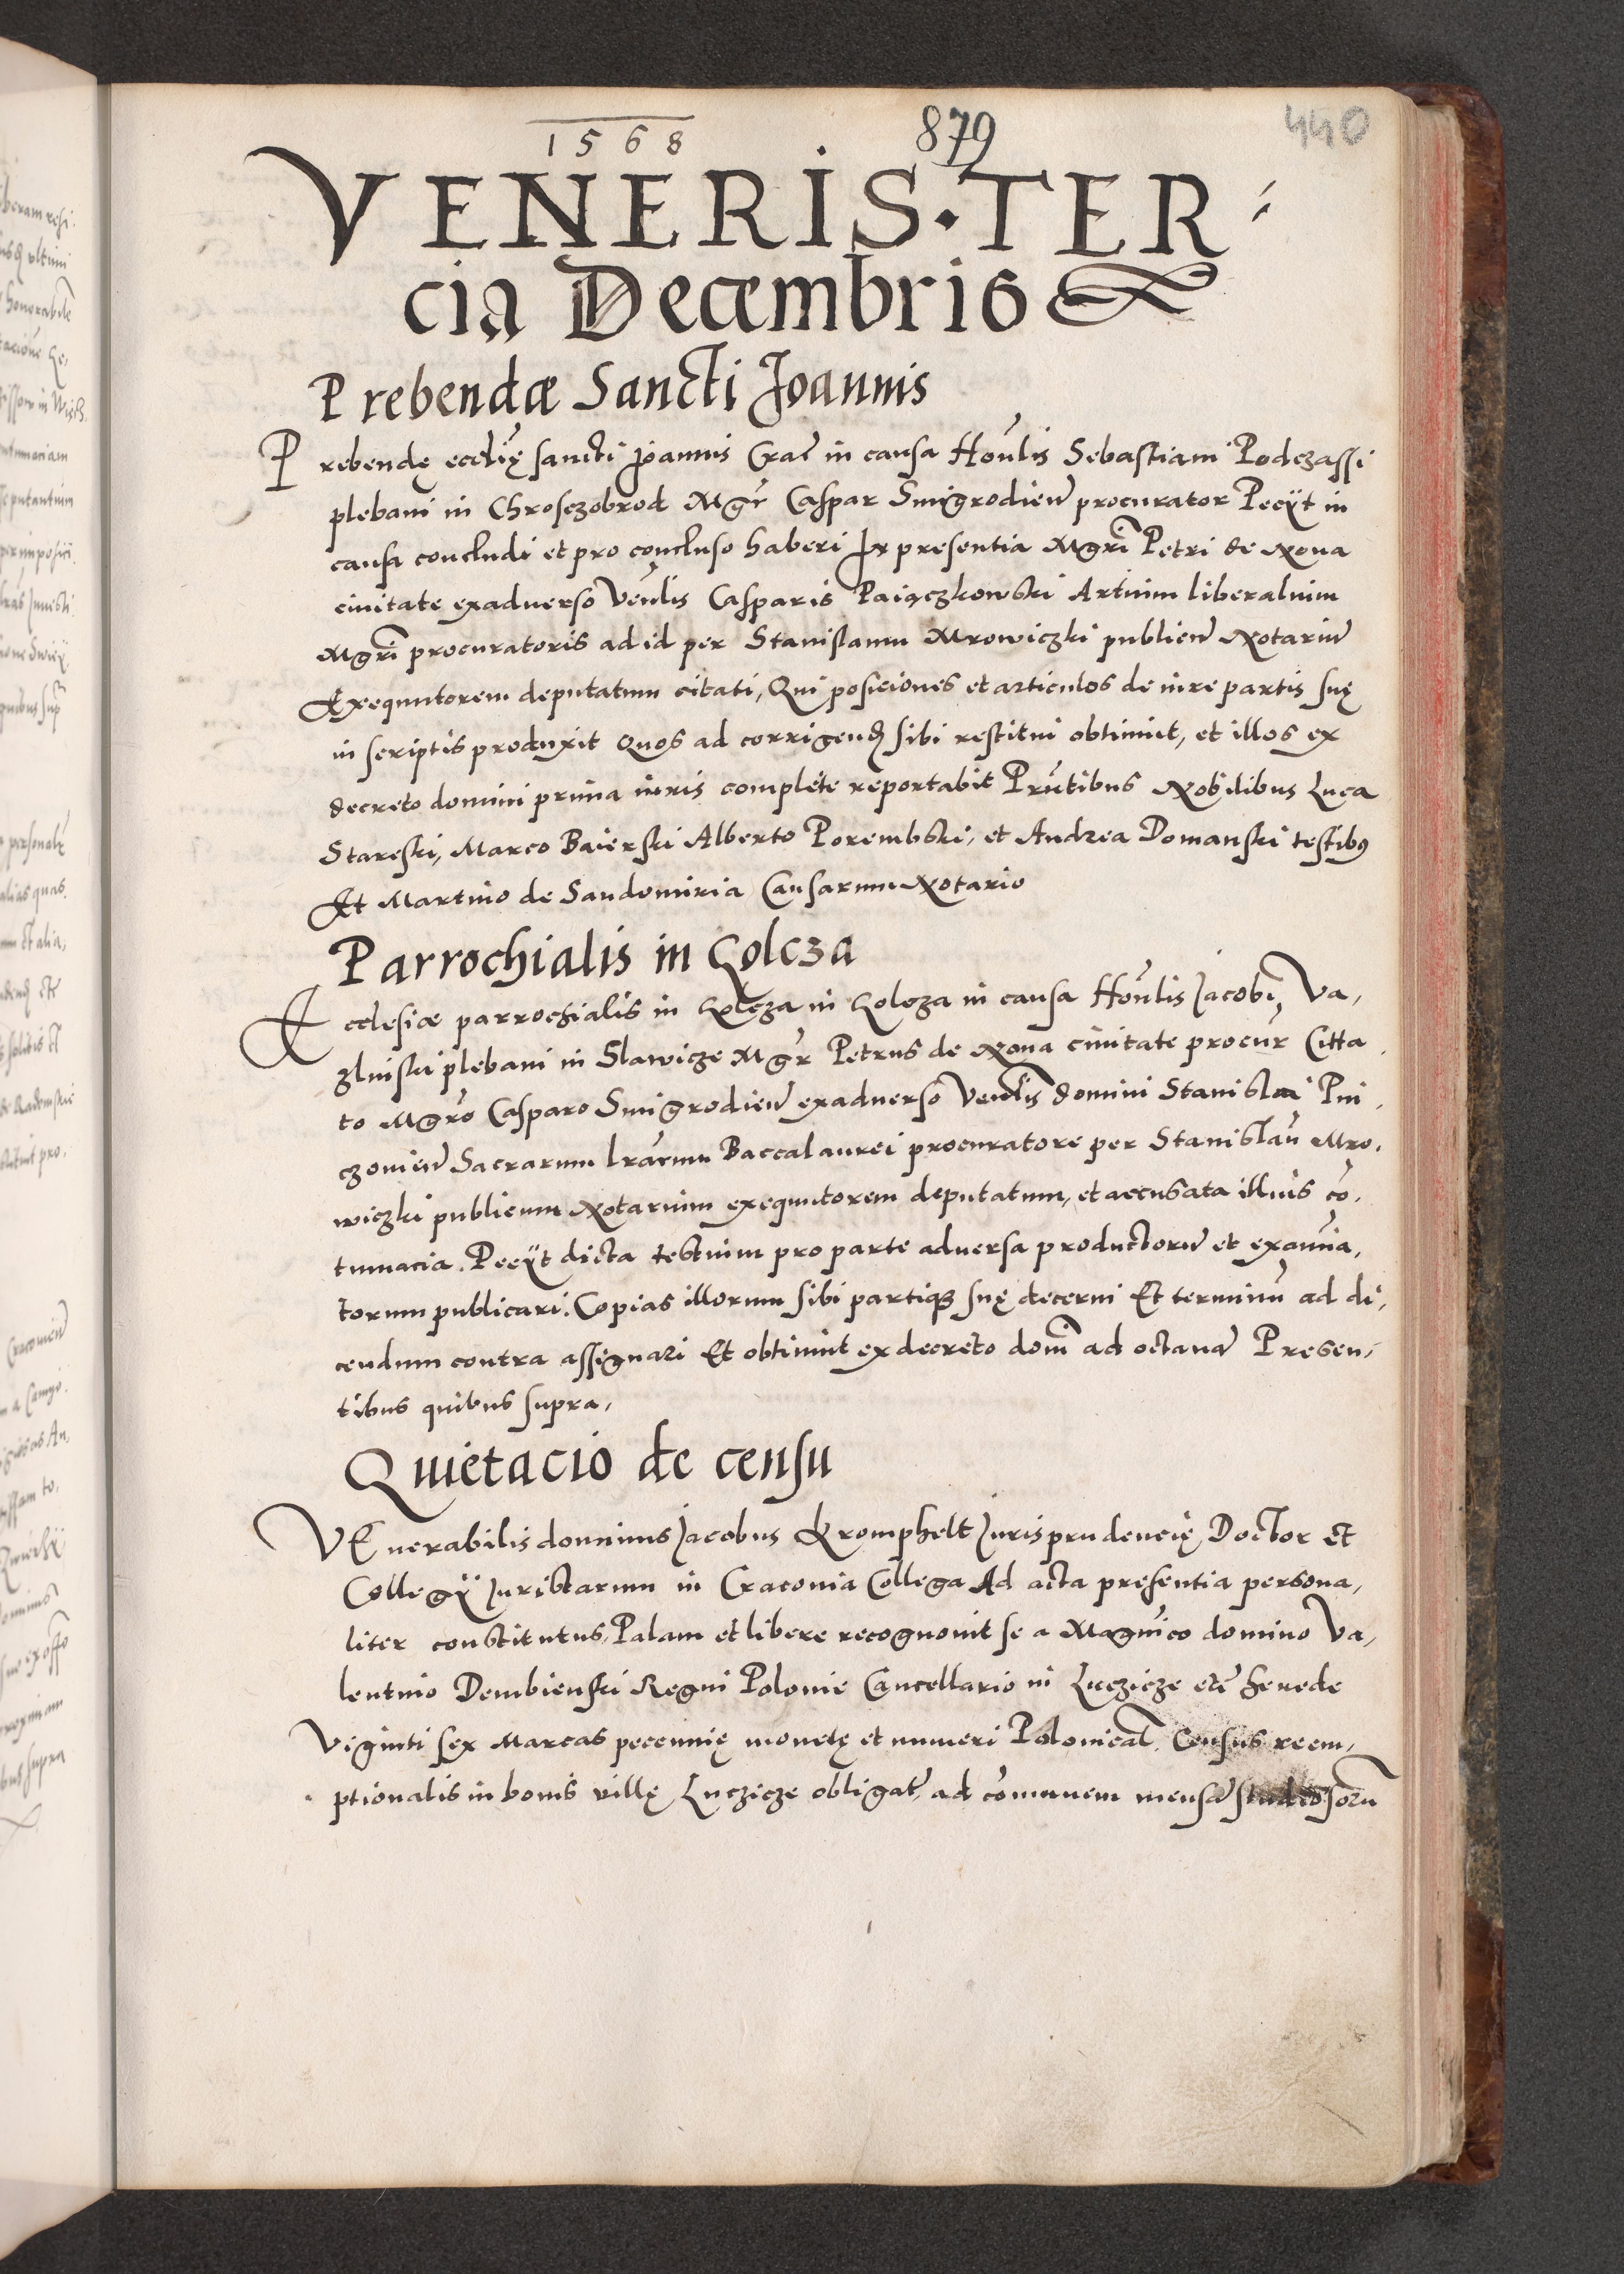 1568 879 440
VENERIS·TER
cia Decembris
Prebendæ Sancti Joannis
Prebendę ecclię sancti Joannis Crac̃ in causa Hon̄lis Sebastiani Podczassi
plebani in Chrosczobrod Mgr̄ Caspar Smigrodien̄ procurator Peciit in
causa concludi et pro concluso haberi In presentia Mgri Petri de Nova
civitate exadverso Ven̄lis Casparis Paiączkowski Artium liberalium
Mgri procuratoris ad id per Stanislaum Mrowiczki publicū Notariū
Exequutorem deputatum citati, Qui posiciones et articulos de iure partis suę
in scriptis produxit Quos ad corrigend̄ sibi restitui obtinuit, et illos ex
decreto domini prima iuris complete reportabit Prn̄tibus Nobilibus Luca
Stareski, Marco Baierski Alberto Porembski, et Andrea Domanski testibꝰ
Et Martino de Sandomiria Causarum Notario
Parrochialis in Golcza
Ecclesiæ parrochialis in Golcza in Golcza in causa Hon̄lis Jacobi Va,
zlinski plebani in Slawicze Mgr̄ Petrus de Nova civitate procur̄ Citta
to Mgrō Casparo Smigrodien̄ exadverso Venlis domini Stanislai Pni
czovien̄ Sacrarum lrārum Baccalaurei procuratore per Stanislaū Mro,
wiczki publicum Notarium exequutorem deputatum, et accusata illius cō,
tumacia. Peciit dicta testium pro parte adversa productorū et examīa,
torum publicari. Copias illorum sibi partiqꝫ suę decerni Et terminū ad di,
cendum contra assignari Et obtinuit ex decreto domī ad octavā Presen,
tibus quibus supra,
Quietacio de censu
VEnerabilis dominus Jacobus Kromphelt Jurisprudencię Doctor et
Collegii Juristarum in Cracovia Collega Ad acta presentia persona,
liter constitutus, Palam et libere recognovit se a Magnīco domino Va,
lentino Dembienski Regni Polonie Cancellario in Luczicze etc̄ herede
Viginti sex Marcas pecunnię monetę et numeri Polonical̄. Census reem,
ptionalis in bonis villę Luczicze obligat̄, ad cōmunem mensā studiosorū